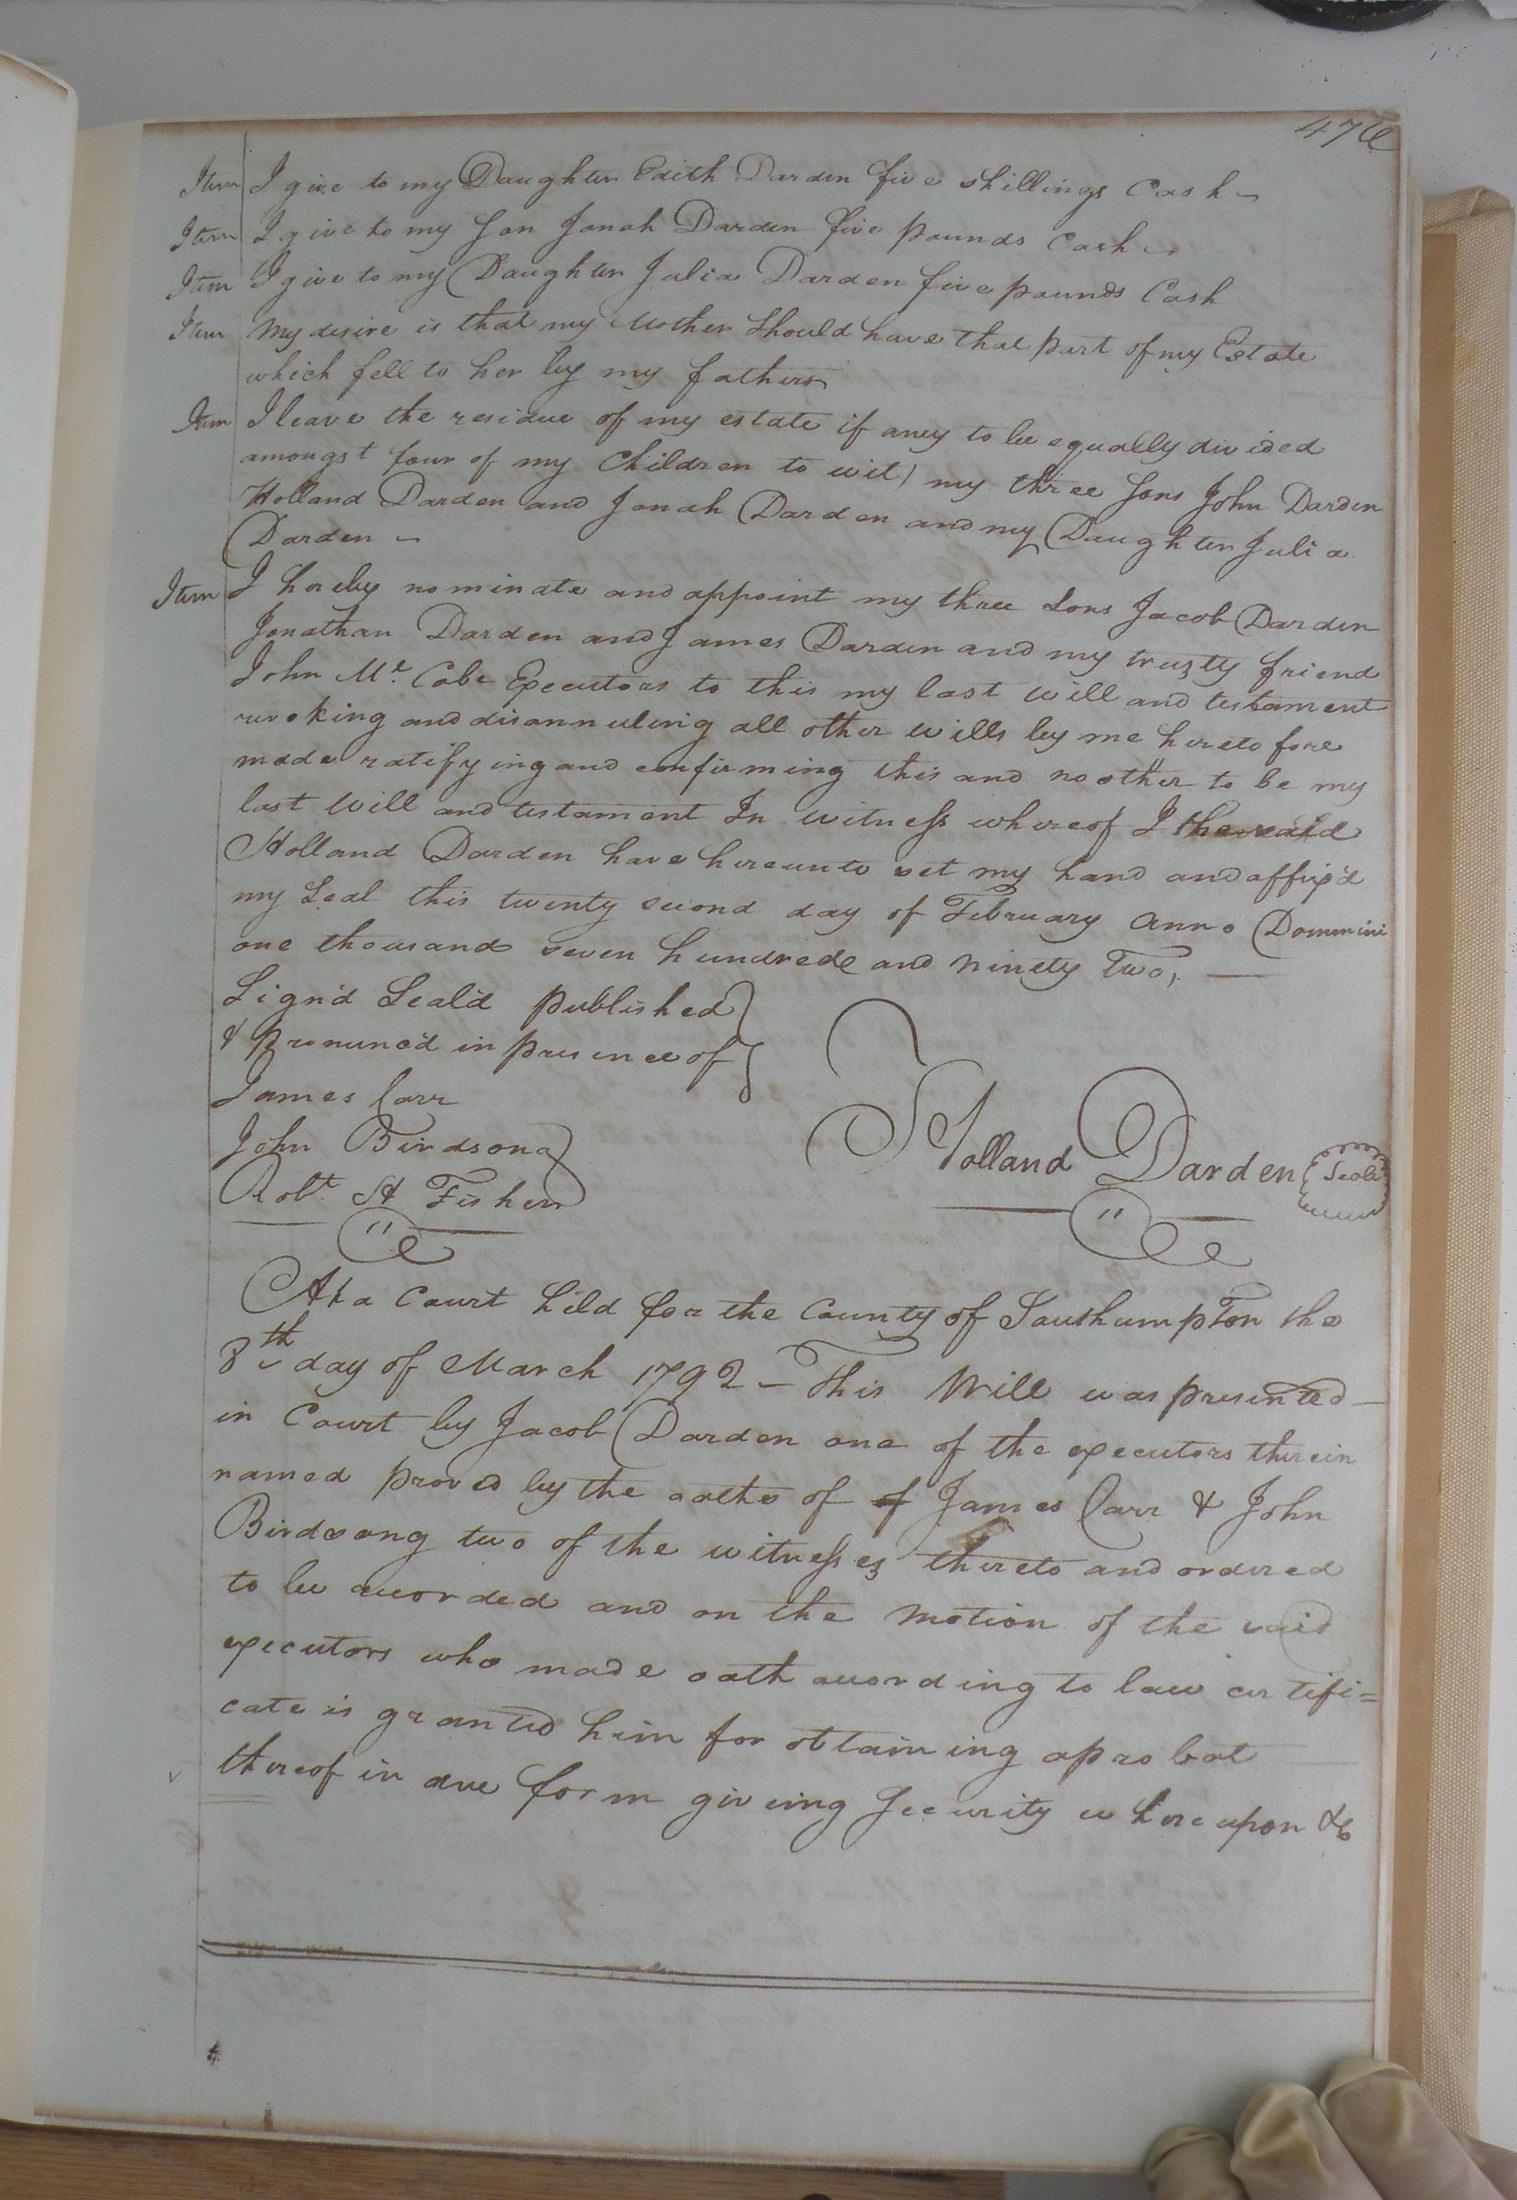 476
Item I give to my Daughter Edith Darden five shillings Cash
Item I give to my Son Jonah Darden five pounds Cash
Item I give to my Daughter Julia Darden five pounds Cash
Item My desire is that my Mother Should have that part of my Estate
which fell to her by my fathers
Item I leave the residue of my estate if aney to be equally divided
amongst four of my Children to wit) my three Sons John Darden
Holland Darden and Jonah Darden and my Daughter Julia
Darden
Item I hereby nominate and appoint my three Sons Jacob Darden
Jonathan Darden and James Darden and my trusty friend
John Mc. Cabe Executors to this my last will and testament
revoking and disannuling all other wills by me hereto fore
made ratifying and confirming this and no other to be my
last Will and testament In Witness whereof I the said
Holland Darden have hereunto set my hand and affix'd
my Seal this twenty second day of February Anno Dommini
one thousand seven hundrede and Ninety Two,
Sign'd Seal'd published
& Pronunc'd in presence of
James Carr
John Birdsong
Robt. H Fisher
Holland Darden Seal
At a Court held for the County of Southampton the
8th day of March 1792 - This Will was presented
in Court by Jacob Darden one of the executors therein
named proved by the oaths of of James Carr & John
Birdsong two of the witnesses thereto and ordered
to be recorded and on the Motion of the said
executors who made oath according to law certifi=
cate is granted him for obtaining a probat
thereof in due form giveing Security where upon &c